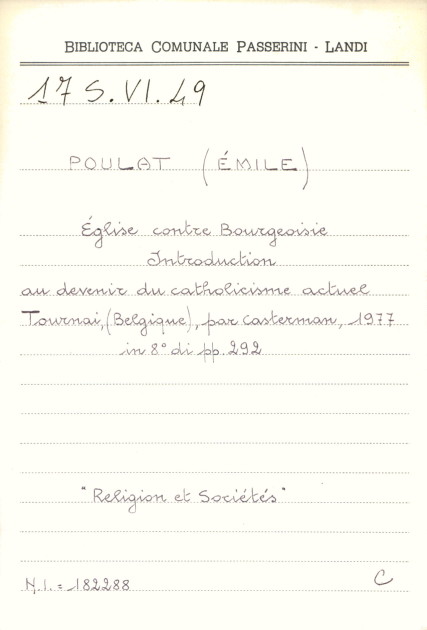 BIBLIOTECA COMUNALE PASSERINI - LANDI
17 S.VI.49
POULAT (ÉMILE)
Église contre Bourgeoisie
Introduction
au devenir du catholicisme actuel
Tournai, (Belgique), par Casterman, 1977
in 8° di pp. 292
"Religion et Sociétés"
N.I. = 182288
C